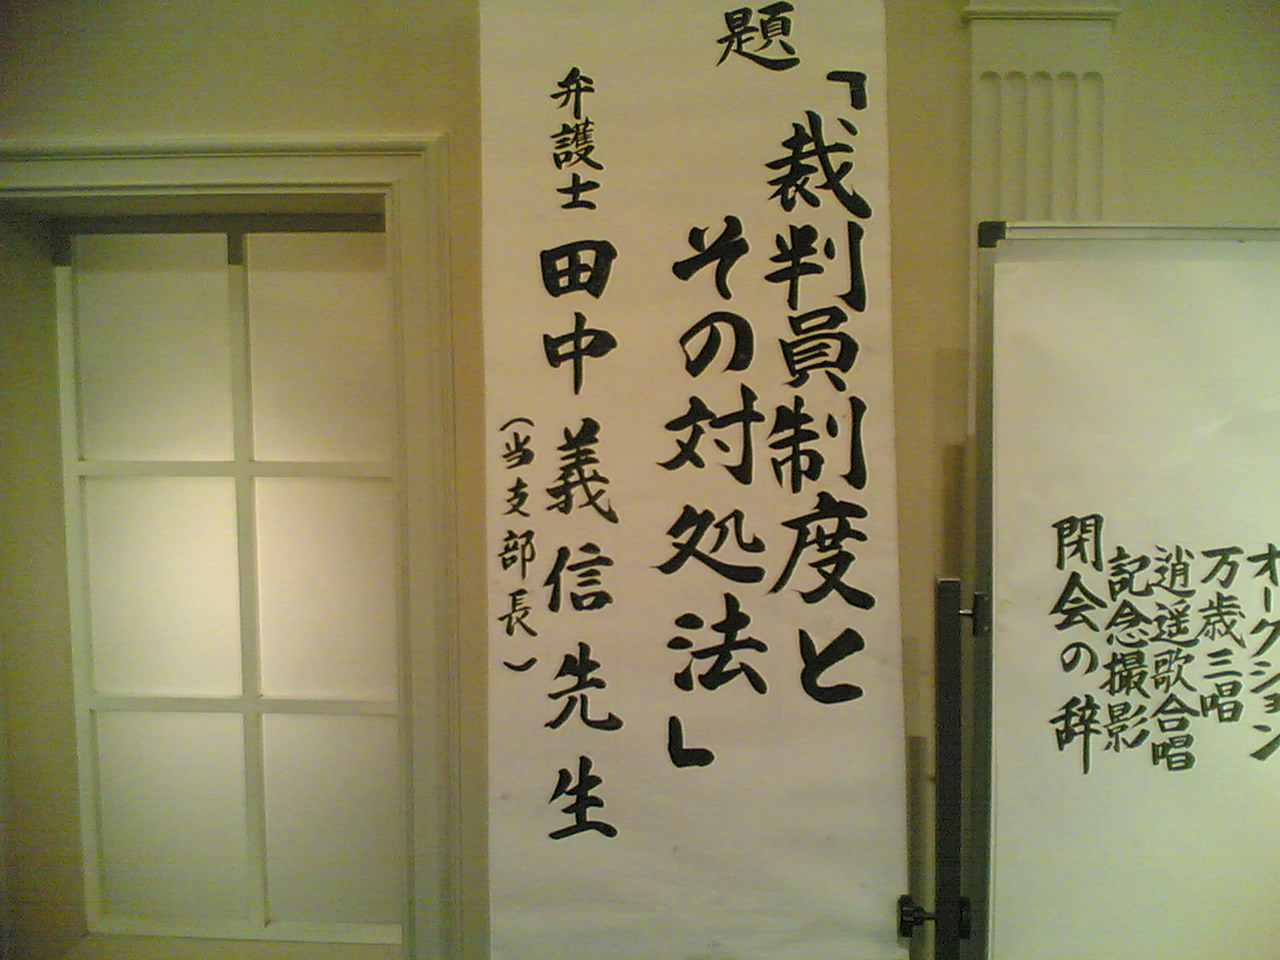 題
「裁判員制度と
その対処法」
弁護士 田中義信先生
（当支部長）
オークション
万歳三唱
逍遥歌合唱
記念撮影
閉会の辞